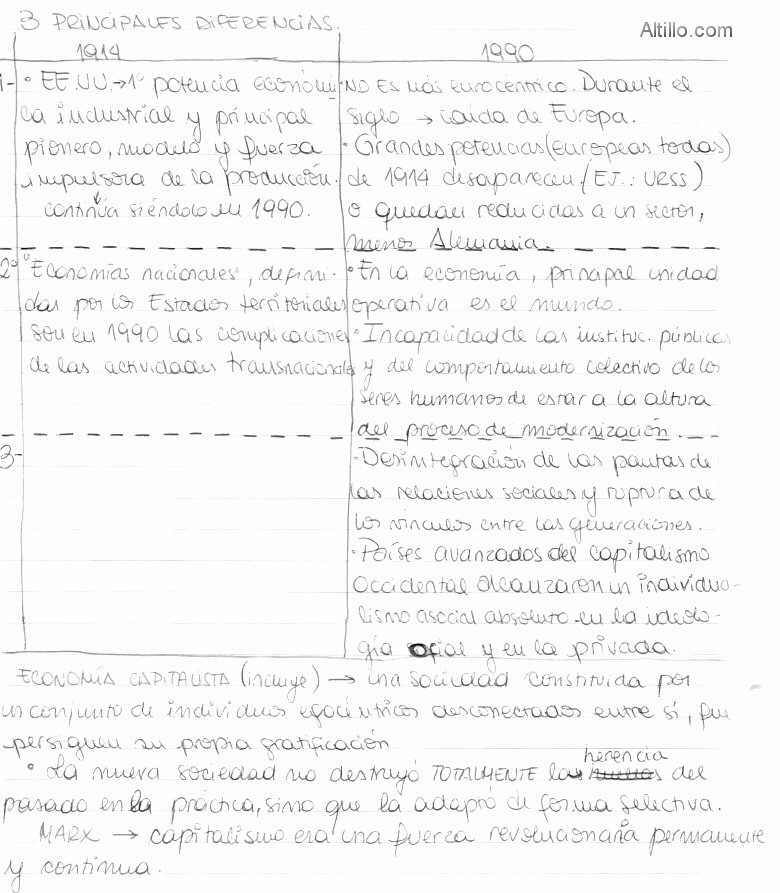 3 PRINCIPALES DIFERENCIAS.
Altillo.com
1914
1- • EE.UU. → 1º potencia económi
ca industrial y principal
pionero, modelo y fuerza
impulsora de la producción.
continúa siéndolo en 1990.
1990
NO ES más eurocéntrico. Durante el
siglo → caída de Europa.
• Grandes potencias (europeas todas)
de 1914 desaparecen (EJ.: URSS)
o quedan reducidas a un sector,
menos Alemania.
2º "Economías nacionales", defini-
das por los Estados territoriales
son en 1990 las complicaciones
de las actividades transnacionales
• En la economía, principal unidad
operativa es el mundo.
• Incapacidad de las instituc. públicas
y del comportamiento colectivo de los
seres humanos de estar a la altura
del proceso de modernización.
3-
• Desintegración de las pautas de
las relaciones sociales y ruptura de
los vínculos entre las generaciones.
• Países avanzados del capitalismo
occidental alcanzaron un individua-
lismo asocial absoluto en la ideolo-
gía oficial y en la privada.
ECONOMÍA CAPITALISTA (incluye) → una sociedad constituida por
un conjunto de individuos egocéntricos desconectados entre sí, que
persiguen su propia gratificación
• La nueva sociedad no destruyó TOTALMENTE la herencia del
pasado en la práctica, sino que la adaptó de forma selectiva.
MARX → capitalismo era una fuerza revolucionaria permanente
y continua.